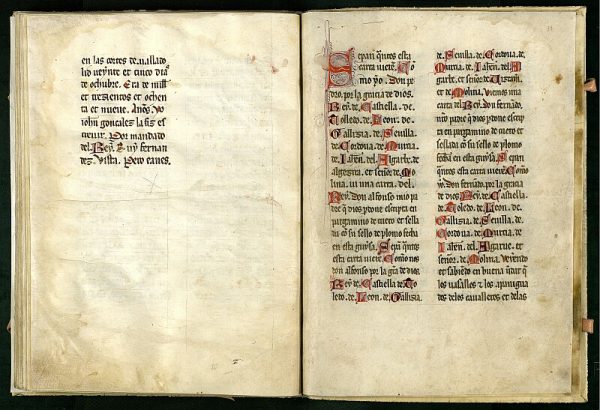 en las cortes de vallado
lid veynte et cinco dias
de octubre. Era de mill
et trezientos et ochen
ta et nueve. Años. yo
john gonçalez la fiz es
crevir. Por mandado
del Rey. ruy fernan
dez. vista. Pero eanes.
Sepan quantos esta
carta vieren. Co
mo yo. Don pe
dro. por la gracia de dios.
Rey. de Castiella. de
Tolledo. de Leon. de
Gallizia. de Sevilla.
de Cordova. de Murcia.
de Iahen. del Algarbe. de
algezira. et señor de Mo
lina. vi una carta. del
Rey. Don alfonso mio pa
dre que dios perdone escripta en
pargamino de cuero et sella
da con su sello de plomo fecha
en esta guisa. Sepan quantos
esta carta vieren. Como nos
don alfonso por la gra de dios
Rey de Castiella de To
ledo. de Leon. de Gallizia.
de Sevilla. de Cordova. de
Murcia. de Iahen. del Al
garbe. et señor de
et de Molina. viemos una
carta del Rey. Don fernando.
nro padre que dios perdone escripta
en pargamino de cuero et
sellada con su sello de plomo
fecha en esta guysa. Sepan
quantos esta carta vieren. Como
yo. Don fernando. por la gracia
de dios Rey. de Castiella
de Toledo. de Leon. de
Gallizia. de Sevilla. de
Cordova. de Murcia. de
Iahen. del Algarve. et
señor. de Molina. veyendo
et sabiendo en buena que
los vasallos et los apaniagua
dos delos cavalleros et delas